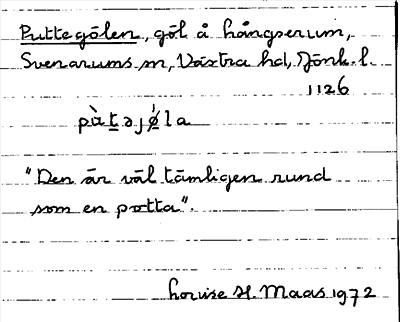 Puttegölen, göl å hångserum,
Svenarums sn, Västra hd, Jönk. l.
1126
pù̀t̲əjǿ̲la
"Den är väl tämligen rund
som en potta".
Louise H. Maas 1972